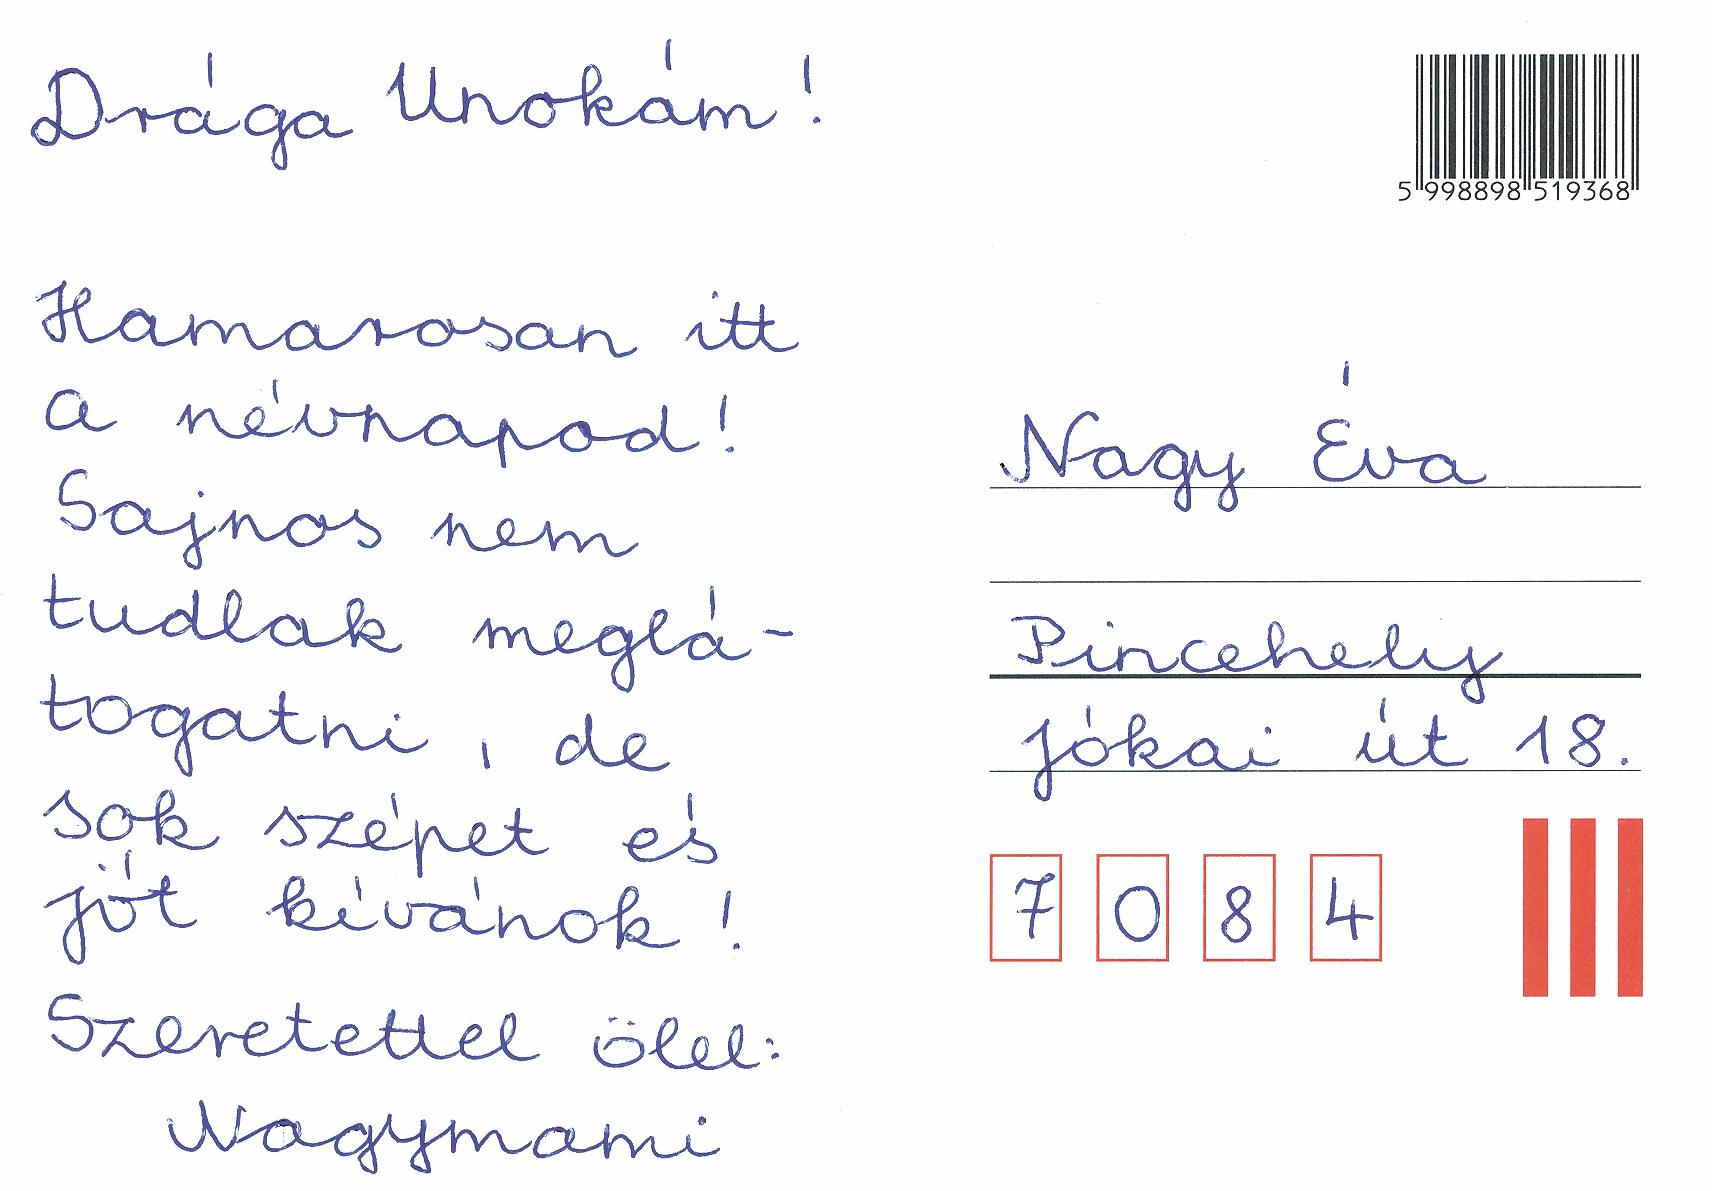 Drága Unokám!
Hamarosan itt
a névnapod!
Sajnos nem
tudlak meglá-
togatni, de
sok szépet és
jót kívánok!
Szeretettel ölel:
Nagymami
5 998898 519368
Nagy Éva
Pincehely
Jókai út 18.
7084